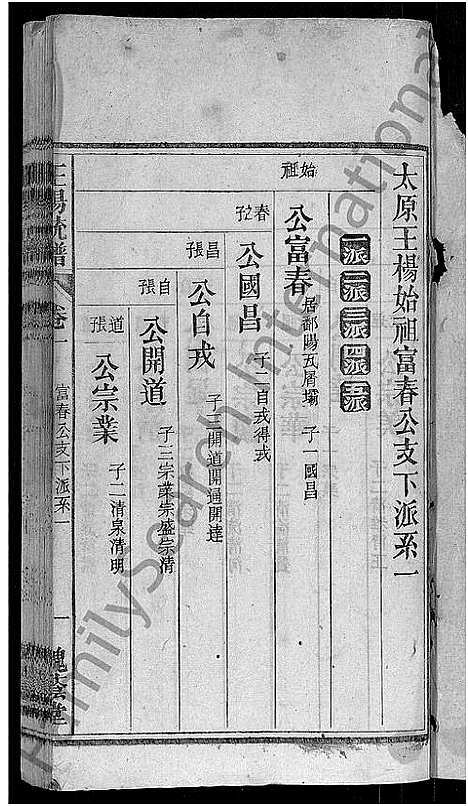 太原王楊始祖富春公支下派系一
一派 二派 三派 四派 五派
始祖
公富春 居鄱陽瓦屑壩 子一國昌
春子
公國昌 子二自戎得戎
昌長
公自戎 子三開道開通開達
自長
公開道 子三宗業宗盛宗清
道長
公宗業 子二清泉清明
王楊統譜 卷一 富春公支下派系一 一 槐蔭堂
FamilySearch International